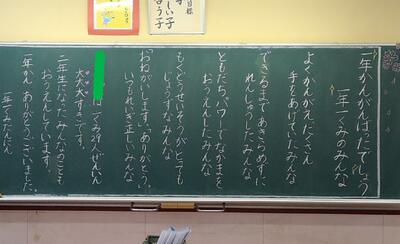 目標
しい子
う子
一年かんがんばったでしょう
一年一くみのみんな
よくかんがえ、たくさん
手をあげていたみんな
できるまであきらめずに
れんしゅうしたみんな
ともだちパワーでなかまを
おうえんしたみんな
もくどうせいそうがとても
じょうずなみんな
「おねがいします。」「ありがとう。」
いつもれいぎ正しいみんな
は一くみさんぜんいん
大大大すきです。
二年生になったみんなのことも
おうえんしています。
一年かん ありがとうございました。
一年一くみたんにん